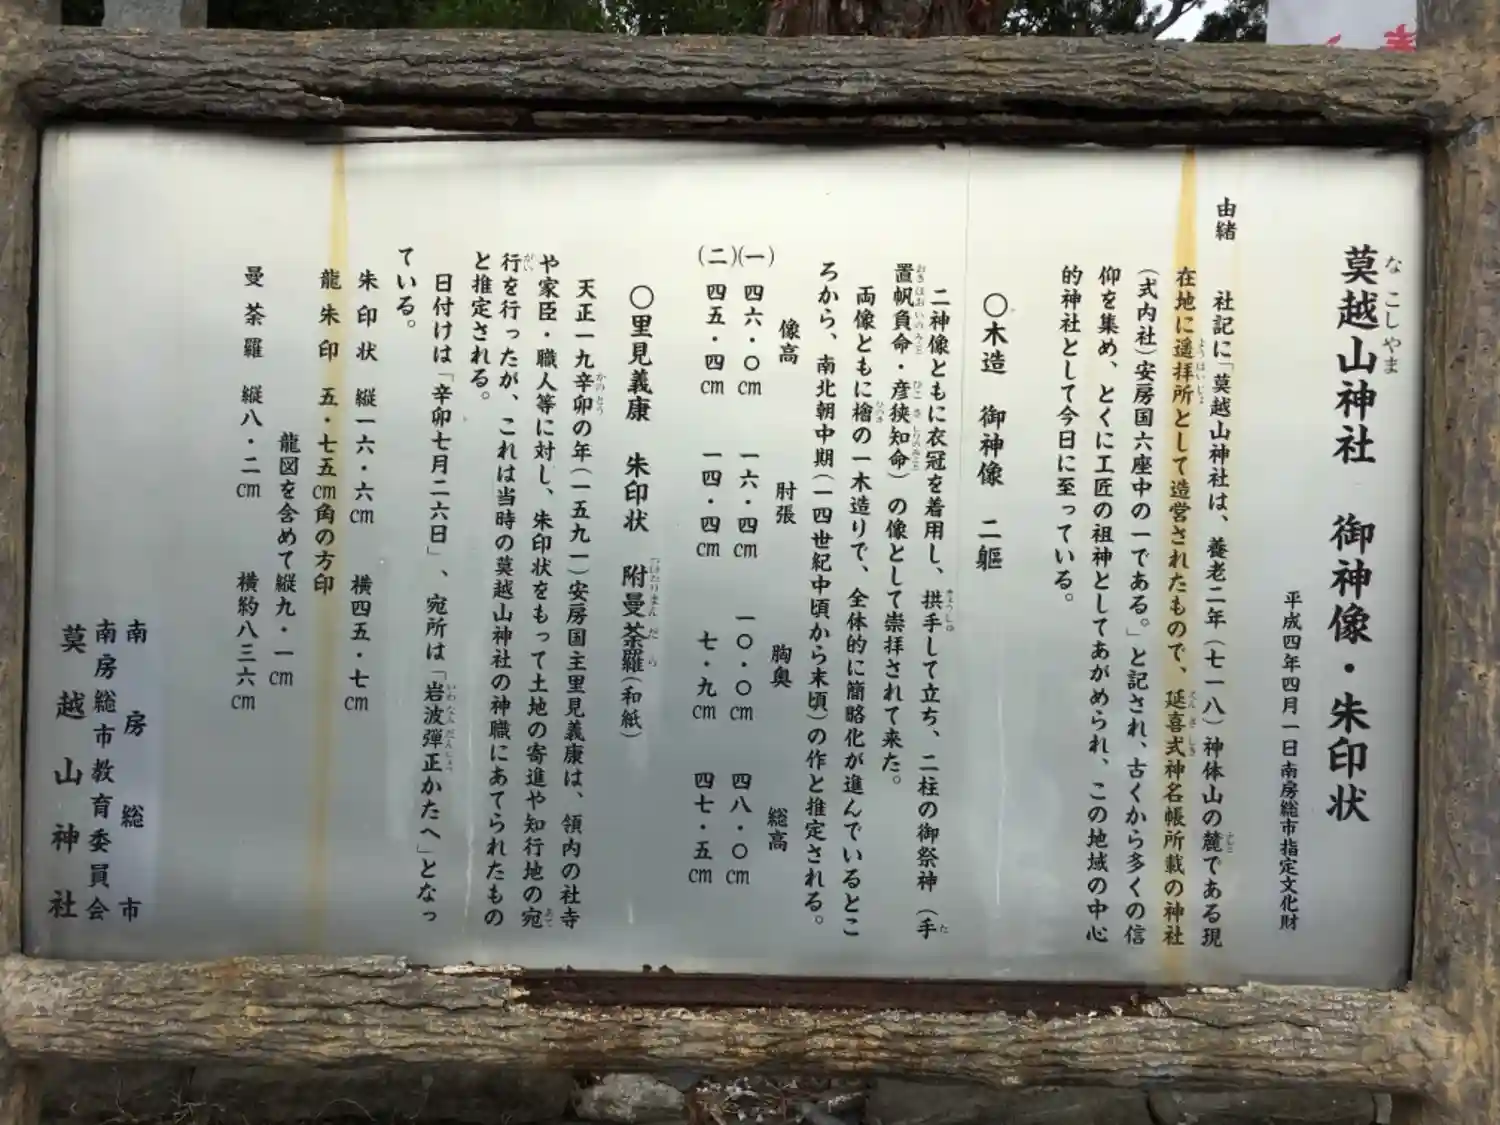 莫越山神社　御神像・朱印状
なこしやま
平成四年四月一日南房総市指定文化財
由緒　社記に「莫越山神社は、養老二年（七一八）神体山の麓である現
在地に遥拝所として造営されたもので、延喜式神名帳所載の神社
（式内社）安房国六座中の一である。」と記され、古くから多くの信
仰を集め、とくに工匠の祖神としてあがめられ、この地域の中心
的神社として今日に至っている。
〇木造　御神像　二軀
二神像ともに衣冠を着用し、拱手して立ち、二柱の御祭神（手
置帆負命・彦狭知命）の像として崇拝されて来た。
両像ともに檜の一木造りで、全体的に簡略化が進んでいるとこ
ろから、南北朝中期（一四世紀中頃から末頃）の作と推定される。
像高　肘張　胸奥　総高
（一）四六・〇cm　一六・四cm　一〇・〇cm　四八・〇cm
（二）四五・四cm　一四・四cm　七・九cm　四七・五cm
〇里見義康　朱印状　附曼荼羅（和紙）
天正一九辛卯の年（一五九一）安房国主里見義康は、領内の社寺
や家臣・職人等に対し、朱印状をもって土地の寄進や知行地の宛
行を行ったが、これは当時の莫越山神社の神職にあてられたもの
と推定される。
日付けは「辛卯七月二六日」、宛所は「岩波弾正かたへ」となっ
ている。
朱印状　縦一六・六cm　横四五・七cm
龍朱印　五・七五cm角の方印
龍図を含めて縦九・一cm
曼荼羅　縦八・二cm　横約八三六cm
南房総市
南房総市教育委員会
莫越山神社